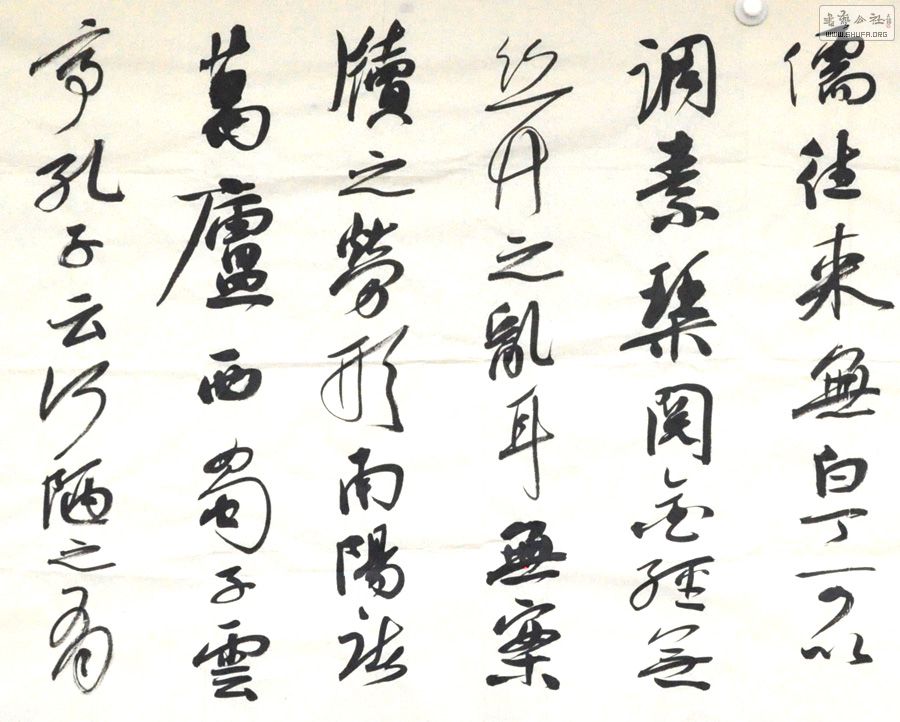 儒往来無白丁可以
調素琴閱金經無
丝竹之亂耳無案
牘之勞形南陽諸
葛廬西蜀子雲
亭孔子云何陋之有
書藝公社
WWW.SHUFA.ORG